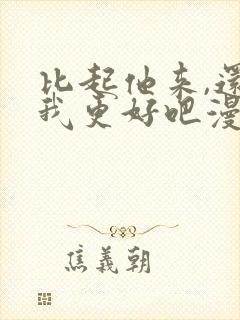 比起他来,还
我更好吧漫
焦義朝